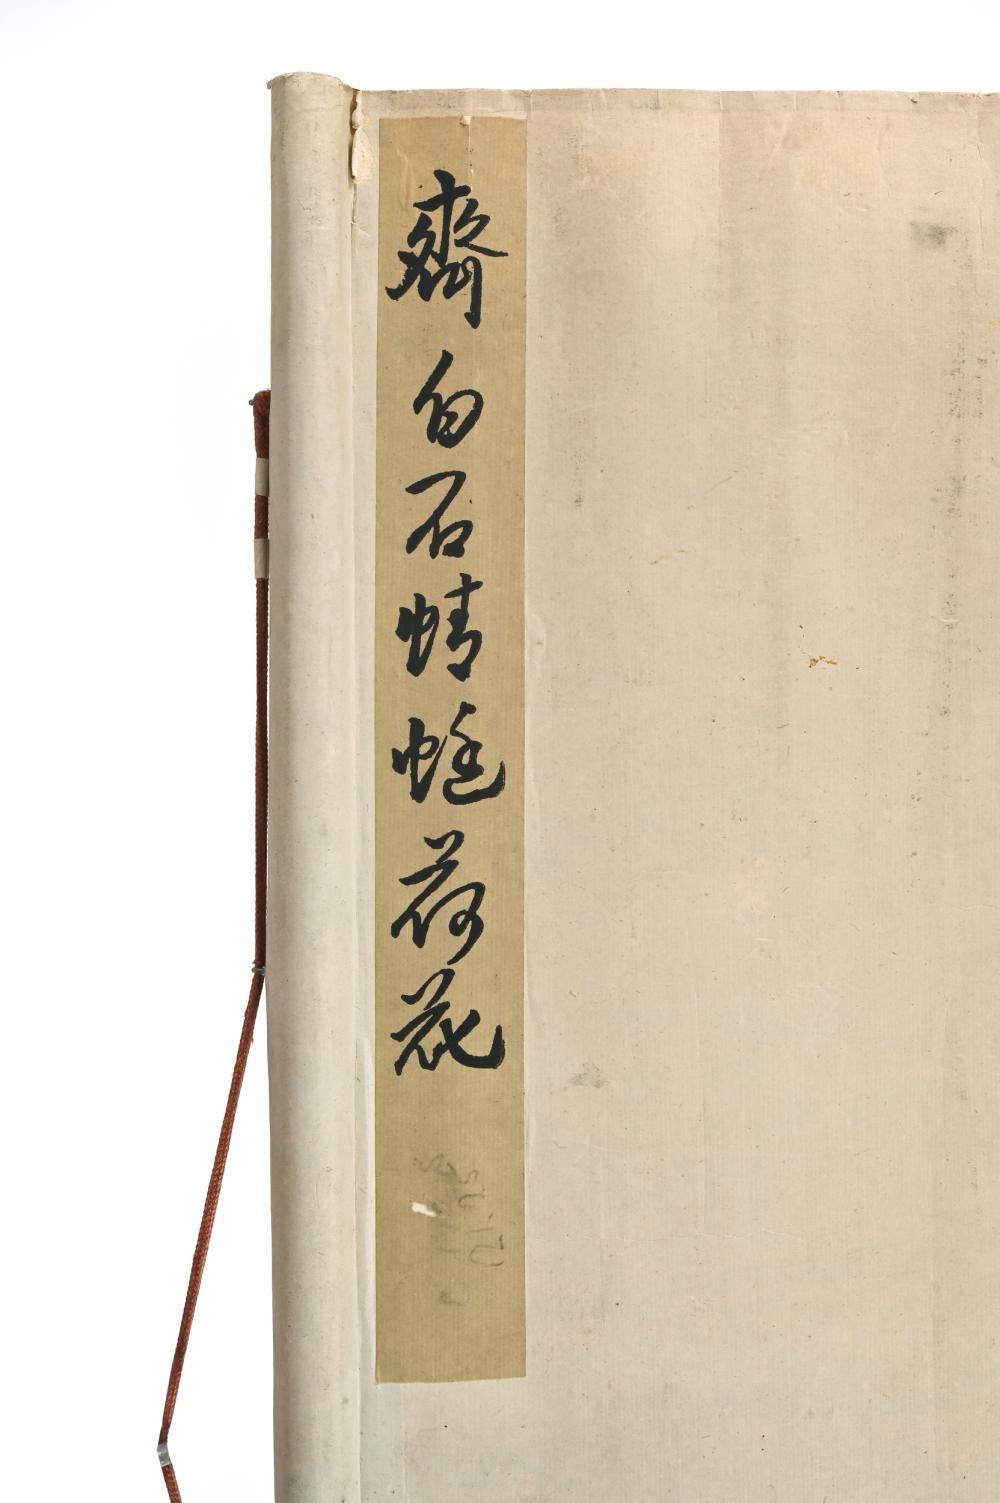 齊白石蜻蜓荷花